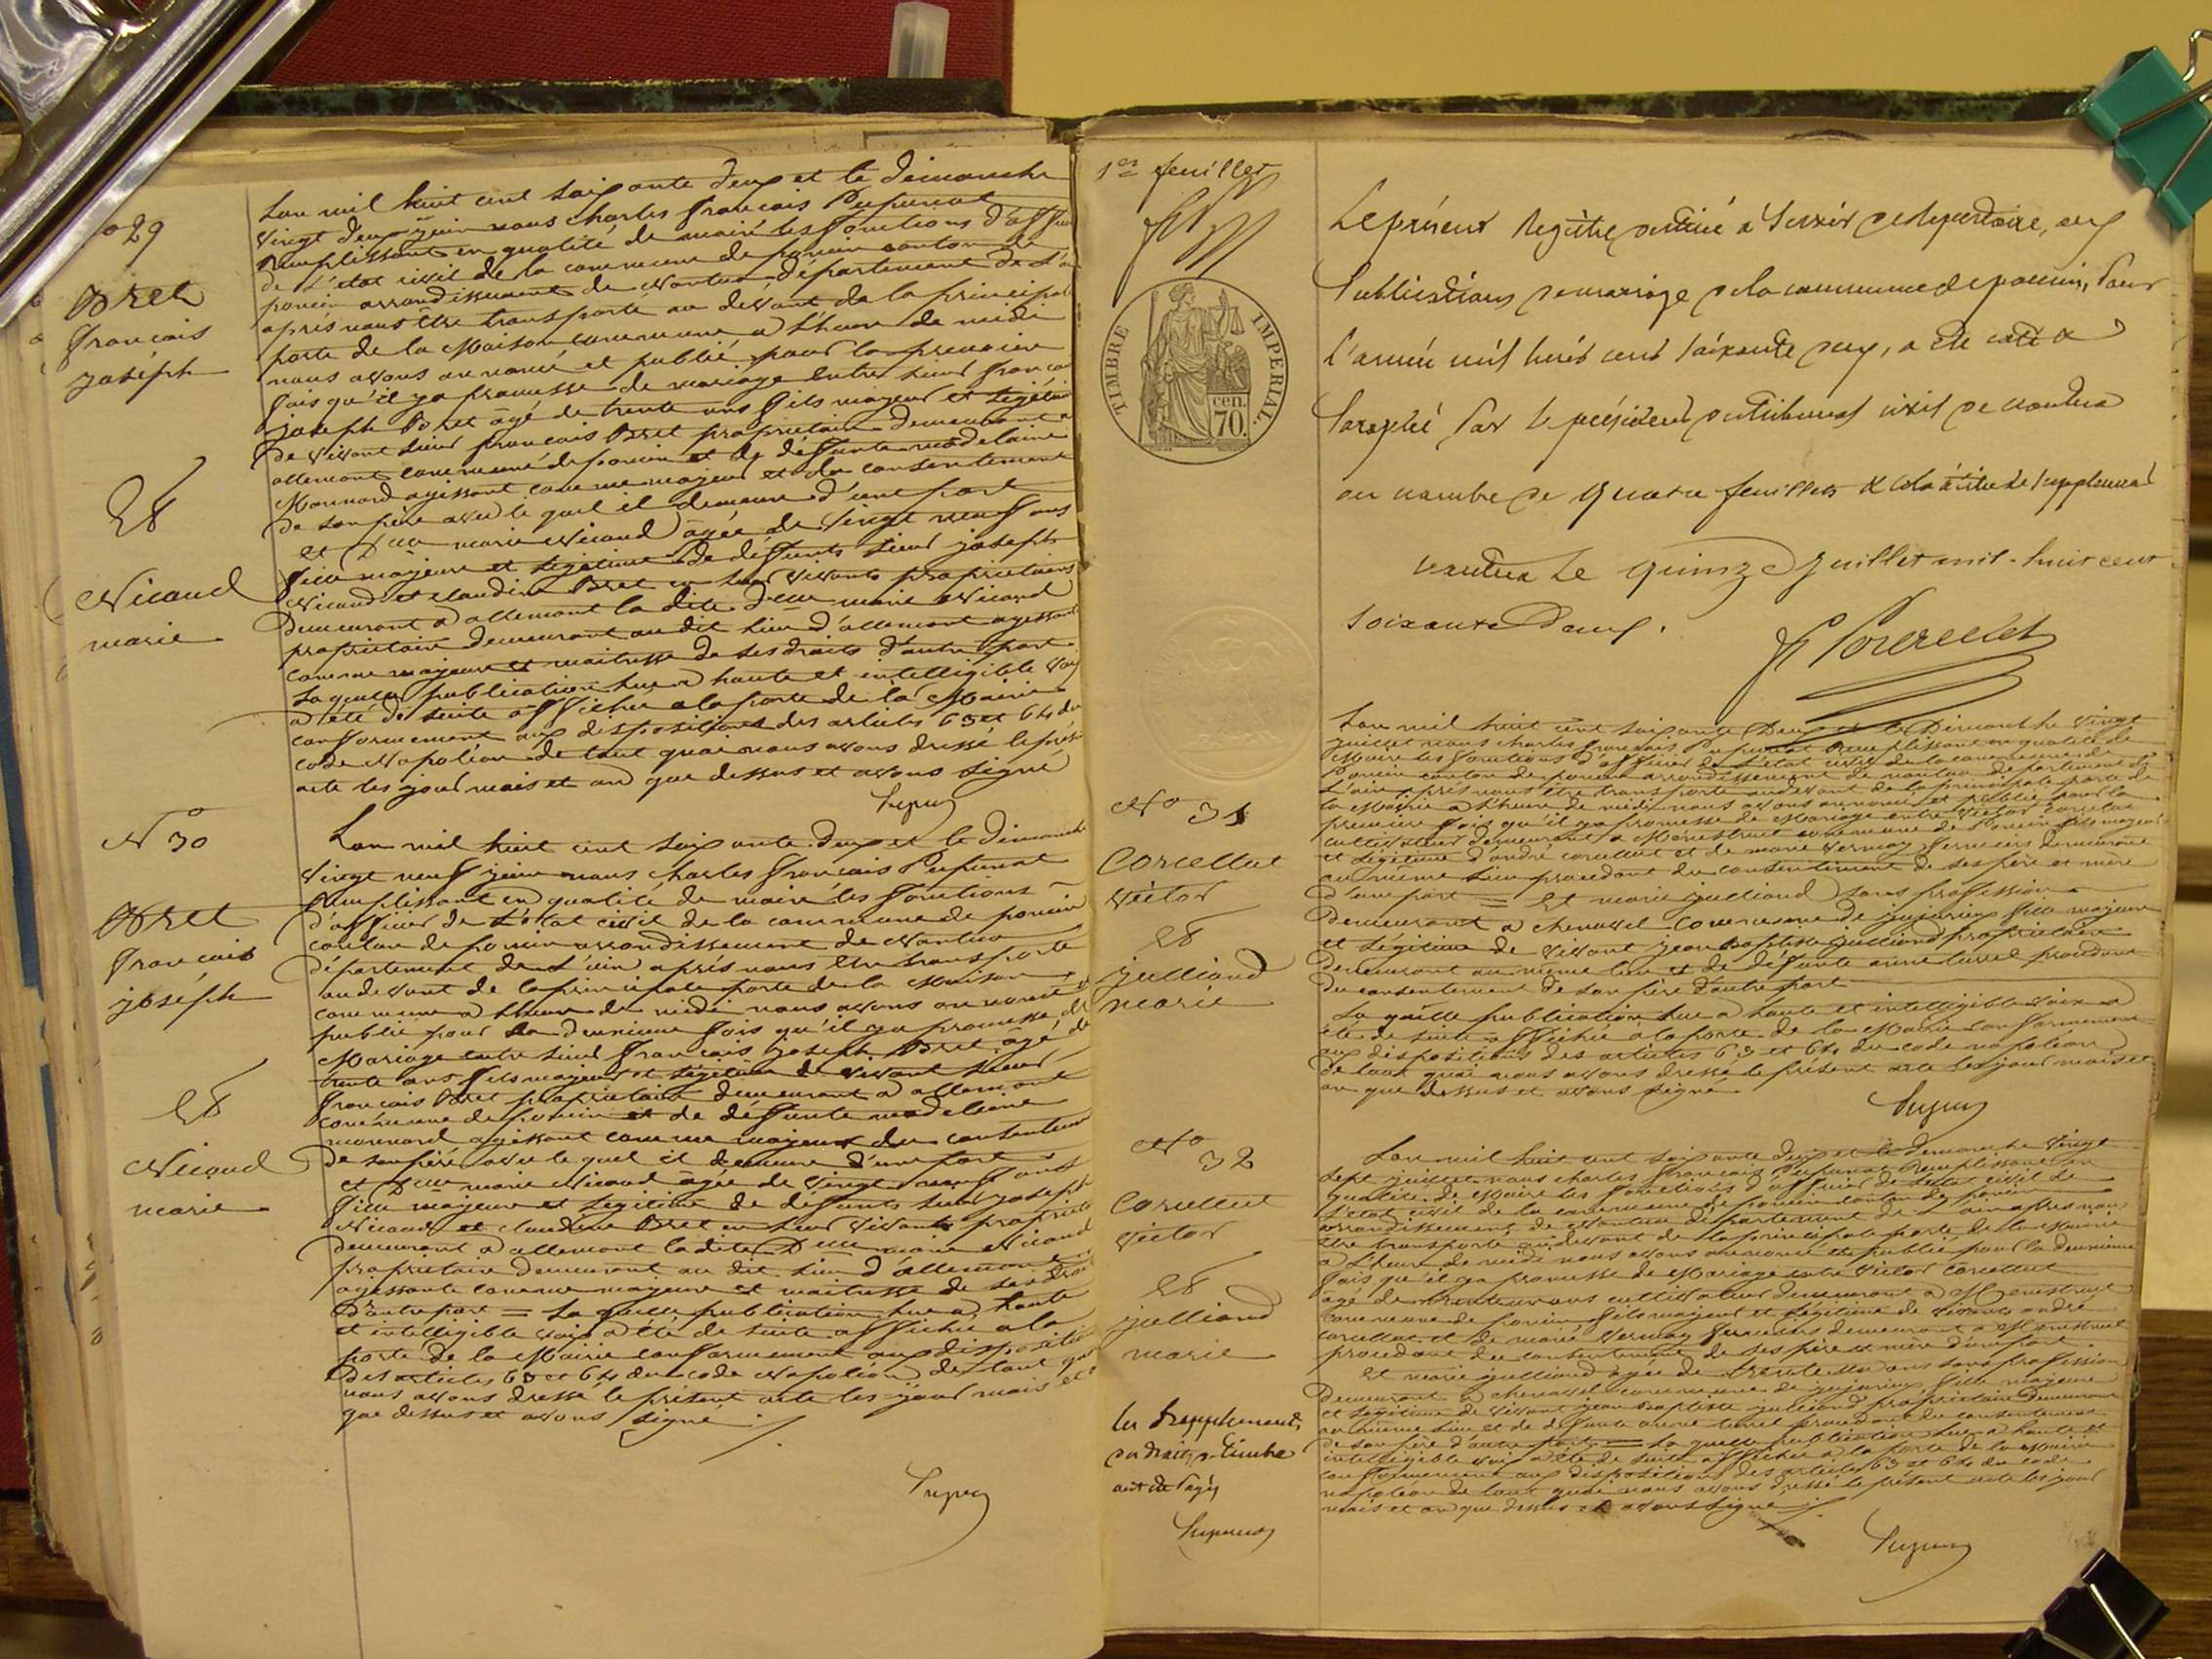 no 29
Bret
françois
joséph
Et
Nicaud
marie
Lan mil huit cent soixante deux et le dimanche
vingt deux juin nous charles françois Pupunat
Remplissant en qualité de maire les fonctions d'offici
de L'état civil de la commune de poncin canton de
poncin arrondissement de Nantua département de L'a
après nous être transporté au devant de la principal
porte de la Maison commune a l'heure de midi
nous avons annoncé et publié pour la premiere
fois qu'il ya promesse de mariage entre sieur franço
joseph Bret âgé de trente ans fils majeur et légéti
de vivant sieur françois Bret propriétaire demeurant a
allemont commune de poncin et de défunte madelaine
Monnard agissant comme majeur et du consentement
de son père avec le quel il demeure d'une part
et Dlle marie Nicaud âgée de vingt neuf ans
fille majeure et légitime de défunts sieur joseph
Nicaud et claudine Bret en leur vivants propriétaires
demeurant a allemont la dite Dlle marie Nicaud
propriétaire demeurant au dit lieu d'allemont agissant
comme majeure et maitresse de ses droits d'autre part
La quelle publication lue a haute et intelligible voix
a été de suite affichée a la porte de la Mairie
conformement aux dispositions des articles 63 et 64 du
code Napoléon de tout quoi nous avons dressé le prés
acte les jour mois et an que dessus et avons signé
No 30
Bret
françois
joséph
Et
Nicaud
marie
Lan mil huit cent soixante deux et le dimanche
vingt neuf juin nous charles françois Pupunat
Remplissant en qualité de maire les fonctions
d'officier de L'état civil de la commune de poncin
canton de poncin arrondissement de Nantua
département de L'ain après nous être transporté
au devant de la principale porte de la Maison
commune a lheure de midi nous avons annoncé et
publié pour la deuxieme fois qu'il ya promesse de
Mariage entre sieur françois joseph Bret âgé de
trente ans fils majeur et légitime de vivant sieur
françois Bret propriétaire demeurant a allemont
commune de poncin et de défunte madelaine
monnard agissant comme majeur du consentem
de son père avec le quel il demeure d'une part
et Dlle marie Nicaud âgée de vingt neuf ans
fille majeure et légitime de défunts sieur joseph
Nicaud et claudine Bret en leur vivants propriéta
demeurant a allemont ladite Dlle marie Nicaud
propriétaire demeurant au dit lieu d'allemont
agissante comme majeure et maitresse de ses droi
d'autre part = La quelle publication lue a haute
et intelligible voix a été de suite affichée a la
porte de la Mairie conformement aux dispositio
des articles 63 et 64 du code Napoléon de tout quo
nous avons dressé le présent acte les jour mois et
que dessus et avons signé
1er feuillet
TIMBRE IMPERIAL.
cen.
70.
Le présent Registre destiné à servir de Repertoire, aux
Publications de mariage de la commune de poncin, pour
l'année mil huit cent soixante deux, a été coté &
Paraphé par le président du Tribunal civil de nantua
au nombre de quatre feuillets & cela à titre de supplément
nantua Le quinze juillet mil-huit cent
soixante Deux.
No 31
Corcellut
victor
Et
julliand
marie
Lan mil huit cent soixante Deux et le Dimanche vingt
juillet nous charles françois Pupunat Remplissant en qualité de
Maire les fonctions d'officier de L'état civil de la commune de
Poncin canton de poncin arrondissement de nantua département de
L'ain après nous être transporté au devant de la principale porte de
la Mairie a l'heure de midi nous avons annoncé et publié pour la
première fois qu'il ya promesse de Mariage entre victor corcellut
cultivateur demeurant a Menestruel commune de Poncin fils majeur
et Légitime d'andré corcellut et de marie vernay fermiers demeurant
au même lieu procédant du consentement de ses père et mère
d'une part = Et marie julliand sans profession
Demeurant a chenavel commune de jujurieux fille majeure
et Légitime de vivant jean baptiste julliand propriétaire
Demeurant au même lieu et de défunte anne turrel procédant
du consentement de son père d'autre part
La quelle publication lue a haute et intelligible voix a
été de suite affichée à la porte de la Mairie conformement
aux dispositions des articles 63 et 64 du code napoléon
de tout quoi nous avons dressé le présent acte les jour mois et
an que dessus et avons signé
No 32
Corcellut
victor
Et
julliand
marie
Lan mil huit cent soixante deux et le demanche vingt
sept juillet nous charles françois Pupunat Remplissant en
qualité de Maire les fonctions d'officier de L'état civil de
L'état civil de la commune de poncin canton de poncin
arrondissement de Nantua département de L'ain après nous
être transporté au devant de la principale porte de la Mairie
a L'heure de midi nous avons annoncé et publié pour la deuxieme
fois qu'il ya promesse de Mariage entre victor corcellut
agé de cultivateur demeurant a Menestruel
commune de poncin fils majeur et légitime de vivants andré
corcellut et de marie vernay fermiers demeurant a Menestruel
procédant du consentement de ses père et mère d'une part
Et marie julliand agée de trente ans sans profession
Demeurant a chenavel commune de jujurieux fille majeure
et Légitime de vivant jean Baptiste julliand propriétaire Demeurant
au même lieu et de défunte anne turrel procédant du consentement
de son père d'autre part = La quelle publication lue a haute et
intelligible voix a été de suite affichée a la porte de la Mairie
conformement aux dispositions des articles 63 et 64 du code
napoléon de tout quoi nous avons dressé le présent acte les jour
mois et an que dessus et avons signé
Les Supplements
du droit de timbre
ont été Payés